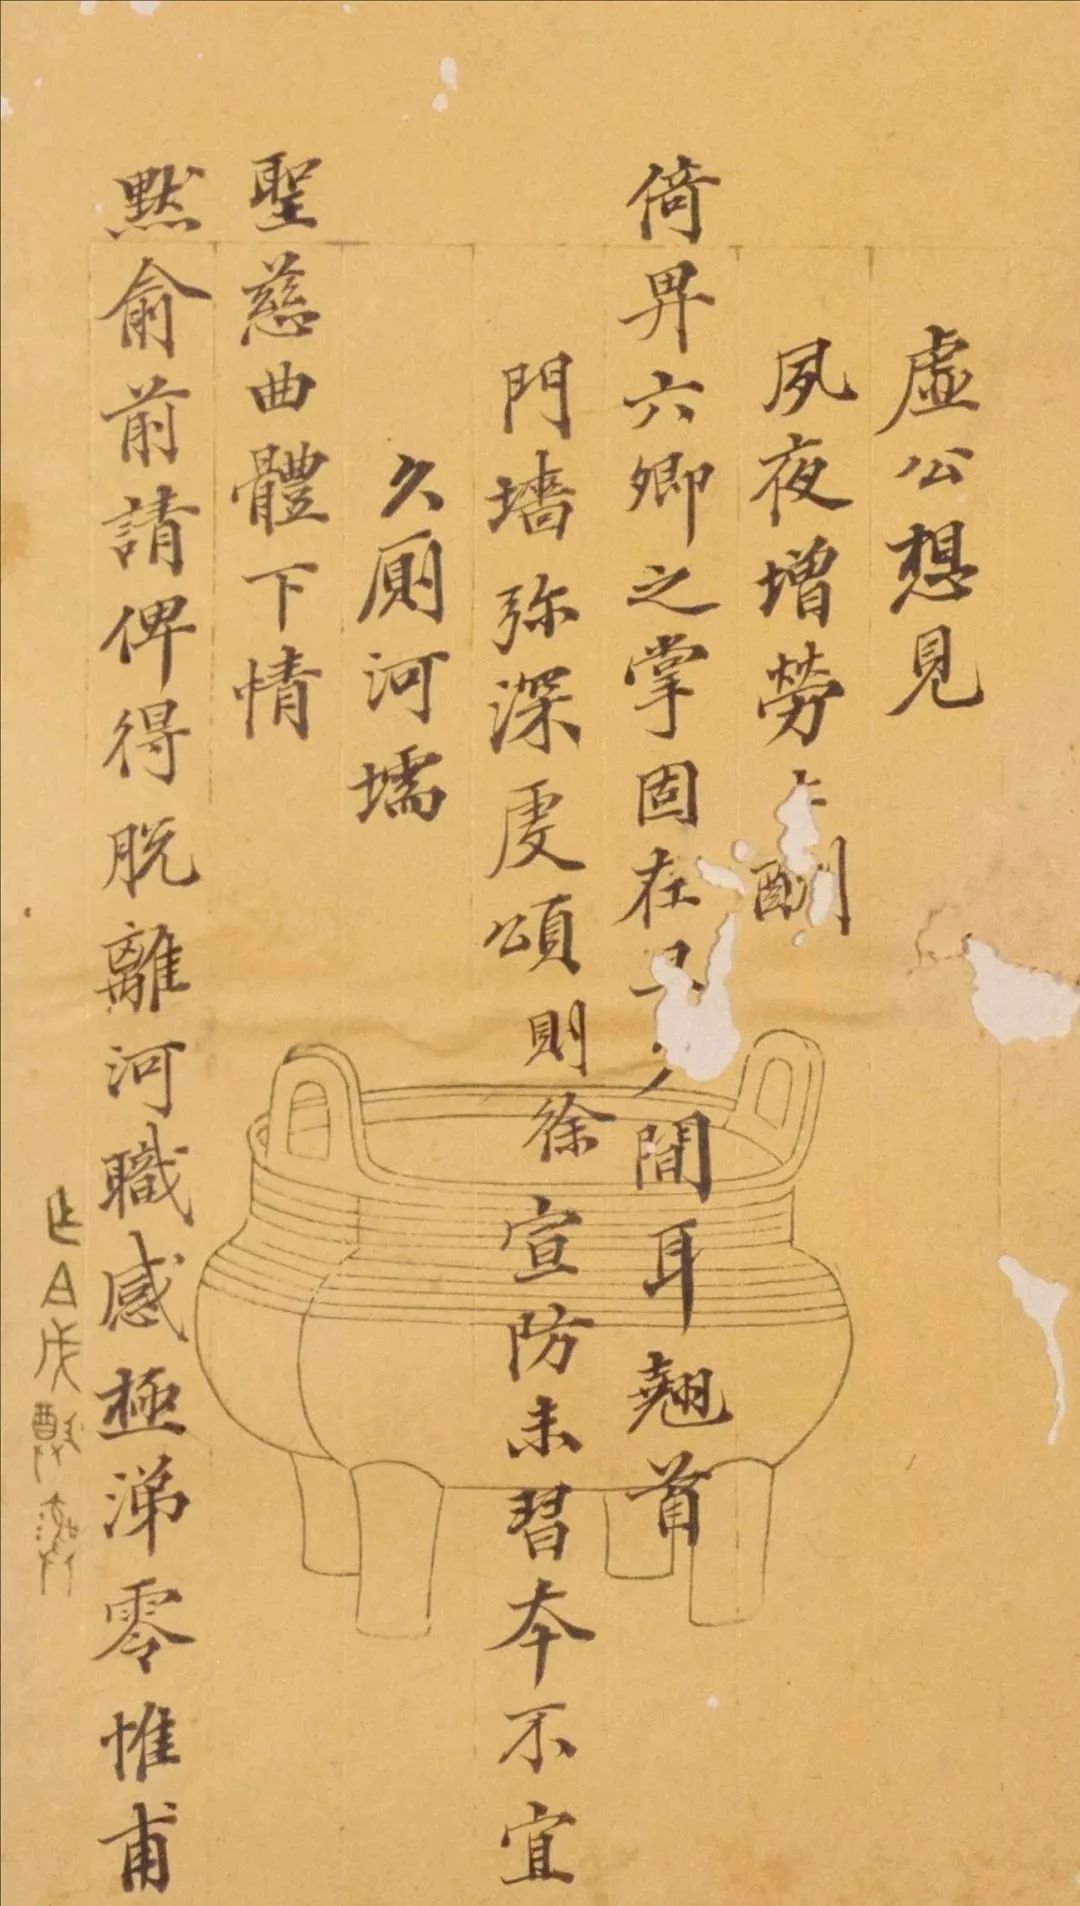 虛公想見
夙夜增勞 酬
倚畀六卿之掌固在 間耳翹首
門墻弥深虔頌則徐宣防未習本不宜
久厠河壖
聖慈曲體下情
默俞前請俾得脫離河職感極涕零惟甫